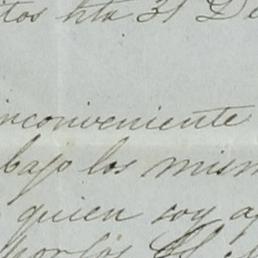 tos hta 31 De
inconveniente
bajo los mism
quien soy a